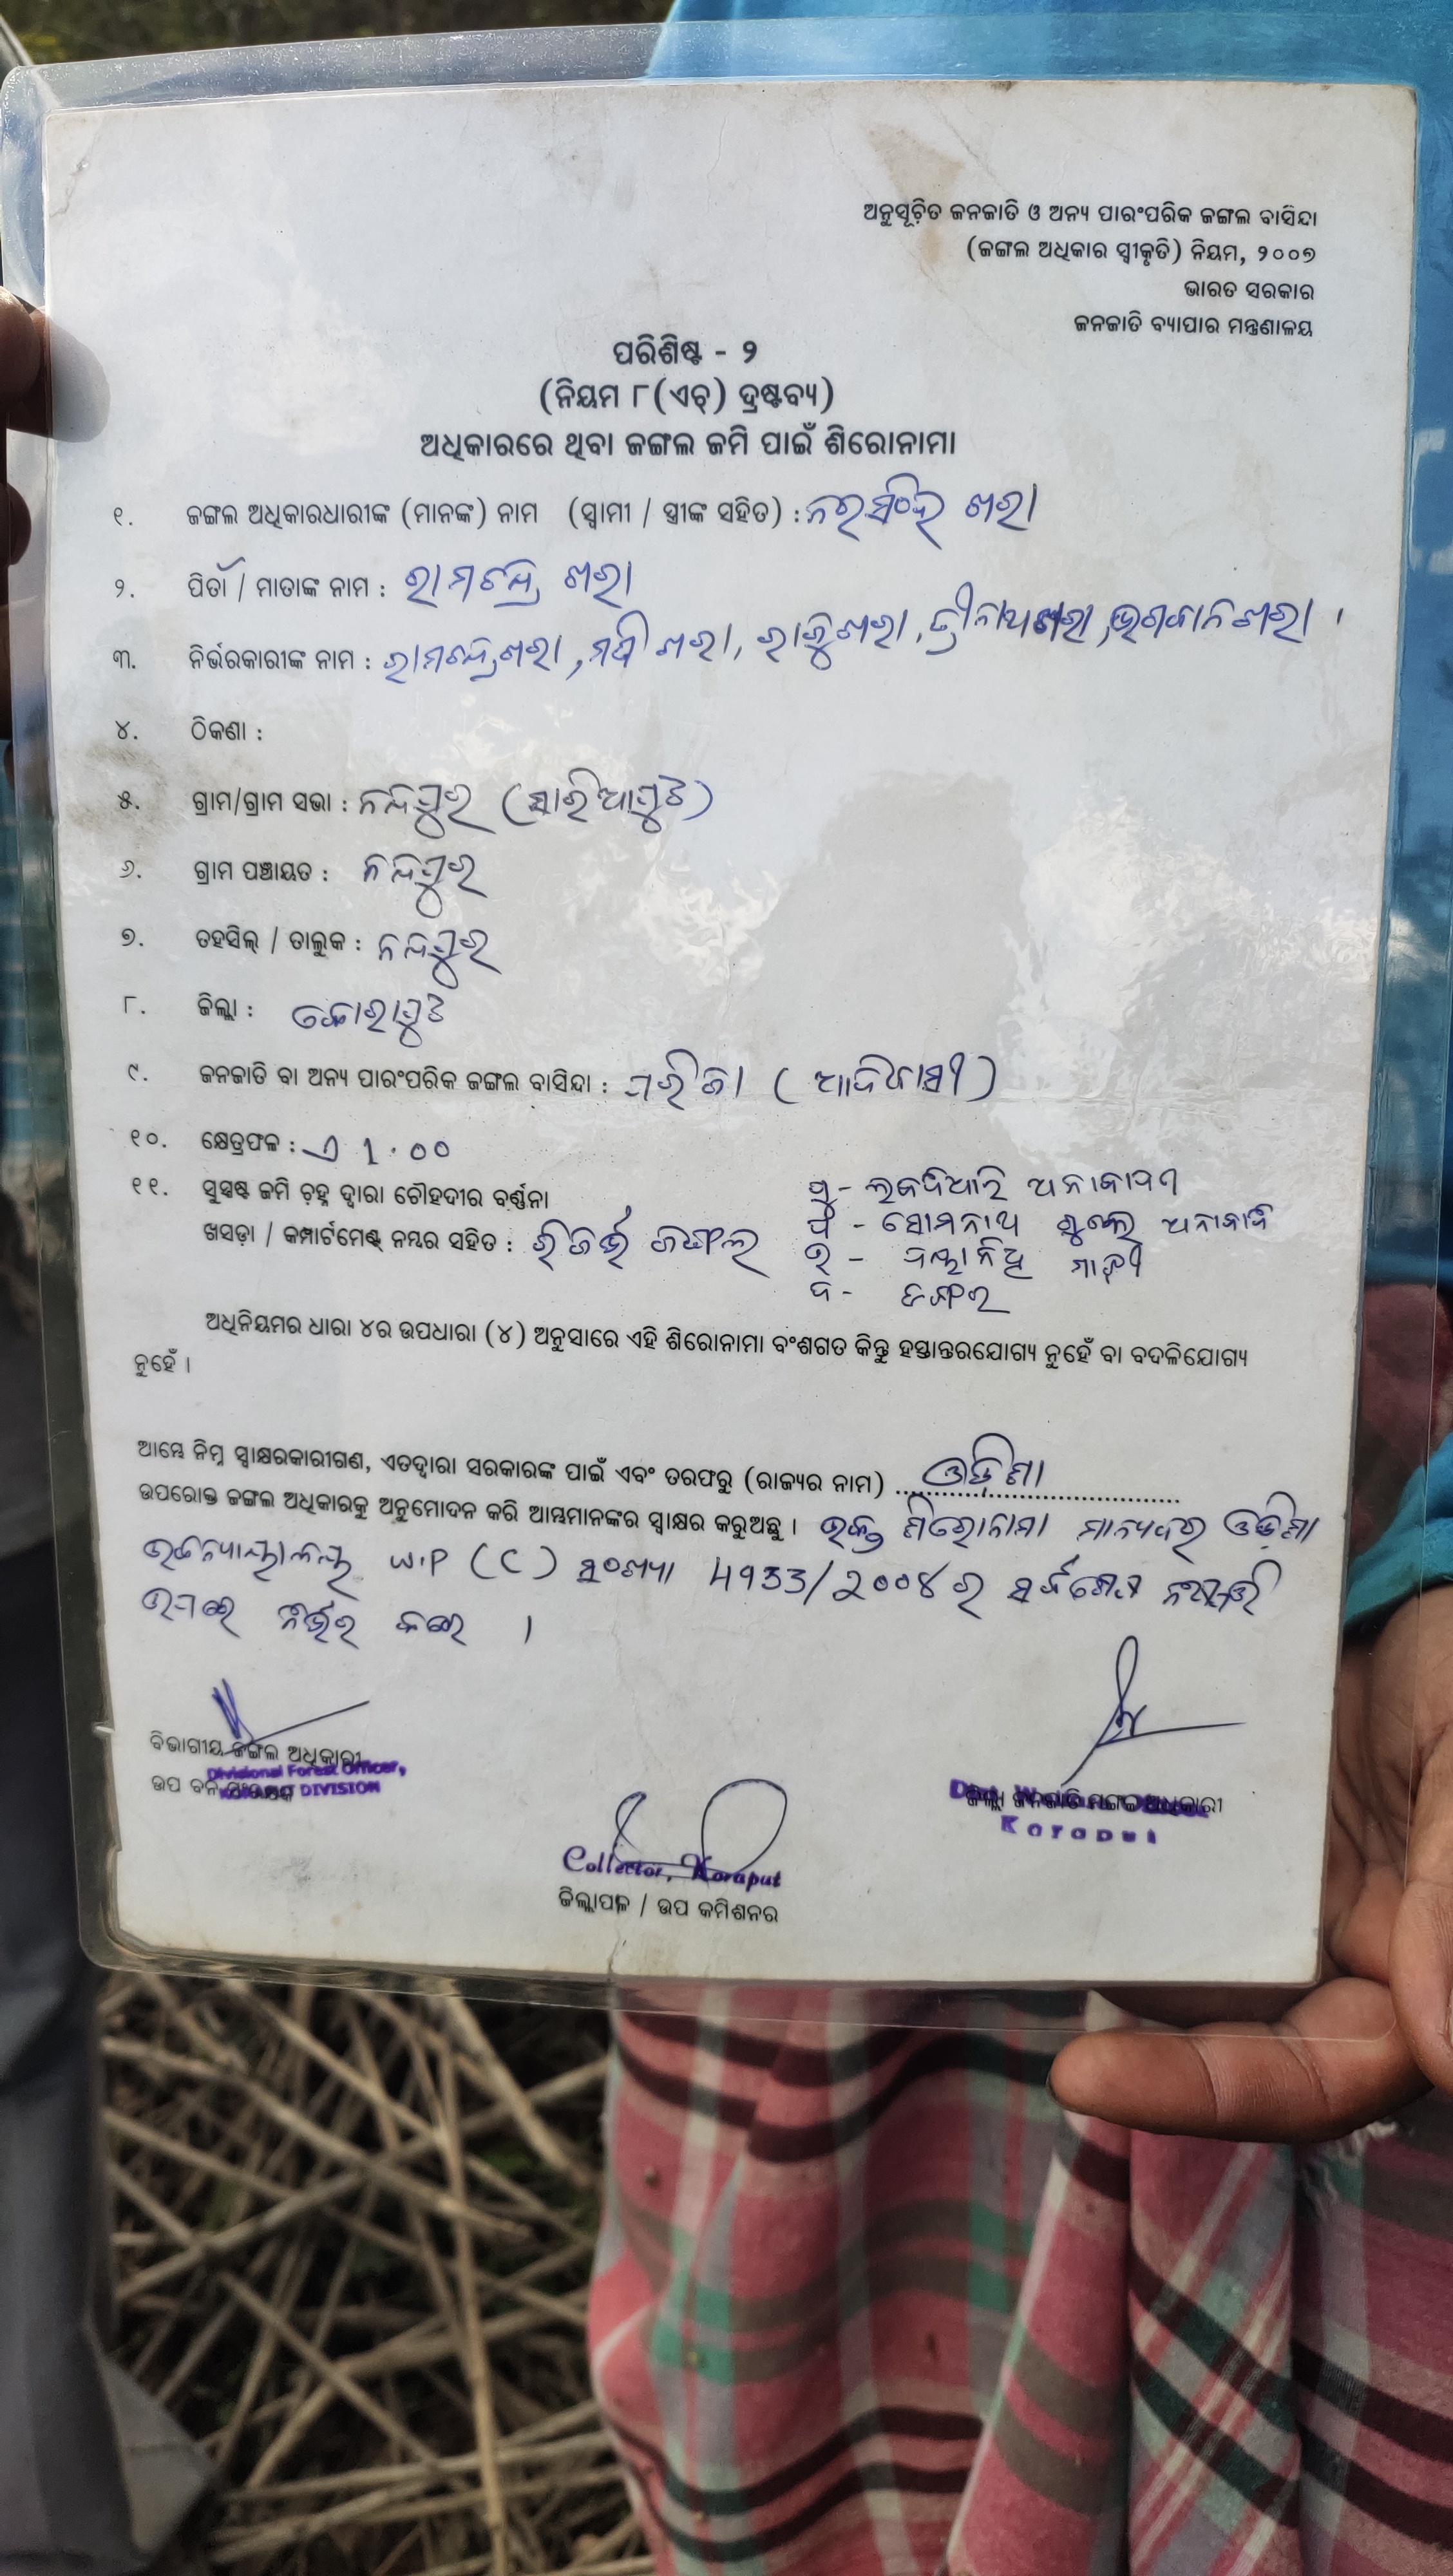 ଅନୁସୂଚିତ ଜନଜାତି ଓ ଅନ୍ୟ ପାରଂପରିକ ଜଙ୍ଗଲ ବାସିନ୍ଦା
(ଜଙ୍ଗଲ ଅଧିକାର ସ୍ୱୀକୃତି) ନିୟମ, ୨୦୦୭
ଭାରତ ସରକାର
ଜନଜାତି ବ୍ୟାପାର ମନ୍ତ୍ରଣାଳୟ
ପରିଶିଷ୍ଟ - ୨
(ନିୟମ ୮(ଏଚ୍) ଦ୍ରଷ୍ଟବ୍ୟ)
ଅଧିକାରରେ ଥିବା ଜଙ୍ଗଲ ଜମି ପାଇଁ ଶିରୋନାମା
୧. ଜଙ୍ଗଲ ଅଧିକାରଧାରୀଙ୍କ (ମାନଙ୍କ) ନାମ (ସ୍ୱାମୀ / ସ୍ତ୍ରୀଙ୍କ ସହିତ) : ନରସିଂହ ଖରା
୨. ପିତା / ମାତାଙ୍କ ନାମ : ରାମଚନ୍ଦ୍ର ଖରା
୩. ନିର୍ଭରକାରୀଙ୍କ ନାମ : ରାମଚନ୍ଦ୍ର ଖରା, ଖରା, ଖରା, ଖରା, ଭଗବାନ ଖରା ।
୪. ଠିକଣା :
୫. ଗ୍ରାମ/ଗ୍ରାମ ସଭା : ନନ୍ଦପୁର (ସାରିଆପୁଟ)
୬. ଗ୍ରାମ ପଞ୍ଚାୟତ : ନନ୍ଦପୁର
୭. ତହସିଲ୍ / ତାଲୁକ : ନନ୍ଦପୁର
୮. ଜିଲ୍ଲା : କୋରାପୁଟ
୯. ଜନଜାତି ବା ଅନ୍ୟ ପାରଂପରିକ ଜଙ୍ଗଲ ବାସିନ୍ଦା : ପରିଜା (ଆଦିବାସୀ)
୧୦. କ୍ଷେତ୍ରଫଳ : ଏ 1.00
୧୧. ସୁସ୍ପଷ୍ଟ ଜମି ଚିହ୍ନ ଦ୍ୱାରା ଚୌହଦୀର ବର୍ଣ୍ଣନା
ଖସଡ଼ା / କମ୍ପାର୍ଟମେଣ୍ଟ୍ ନମ୍ବର ସହିତ : ରିଜର୍ଭ ଜଙ୍ଗଲ
ପୂ -
ପ - ସୋମନାଥ
ଉ -
ଦ - ଡଙ୍ଗର
ଅଧିନିୟମର ଧାରା ୪ର ଉପଧାରା (୪) ଅନୁସାରେ ଏହି ଶିରୋନାମା ବଂଶଗତ କିନ୍ତୁ ହସ୍ତାନ୍ତରଯୋଗ୍ୟ ନୁହେଁ ବା ବଦଳିଯୋଗ୍ୟ
ନୁହେଁ ।
ଆମ୍ଭେ ନିମ୍ନ ସ୍ୱାକ୍ଷରକାରୀଗଣ, ଏତଦ୍ୱାରା ସରକାରଙ୍କ ପାଇଁ ଏବଂ ତରଫରୁ (ରାଜ୍ୟର ନାମ) ଓଡ଼ିଶା
ଉପରୋକ୍ତ ଜଙ୍ଗଲ ଅଧିକାରକୁ ଅନୁମୋଦନ କରି ଆମ୍ଭମାନଙ୍କର ସ୍ୱାକ୍ଷର କରୁଅଛୁ । ଉକ୍ତ ଶିରୋନାମା ମାନ୍ୟବର ଓଡ଼ିଶା
ଉଚ୍ଚନ୍ୟାୟାଳୟ W.P (C) ସଂଖ୍ୟା 4933/୨୦୦୪ ର ସର୍ବଶେଷ
ଉପରେ ନିର୍ଭର କରେ ।
ବିଭାଗୀୟ ଜଙ୍ଗଲ ଅଧିକାରୀ
Divisional Forest Officer,
ଉପ ବନ ସଂରକ୍ଷକ
DIVISION
ଜିଲ୍ଲା ଜନଜାତି ମଙ୍ଗଳ ଅଧିକାରୀ
Koraput
Collector, Koraput
ଜିଲ୍ଲାପାଳ / ଉପ କମିଶନର